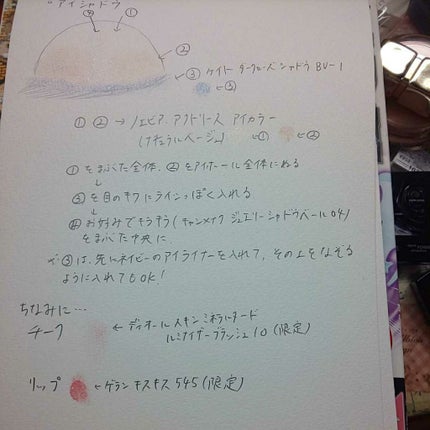 ・アイシャドウ
④ ①
②
③ ケイト ダークローズシャドウ BU-1
③
① ② → ノエビア アクドリース アイカラー
(ナチュラルベージュ) ① ②
① をまぶた全体、② をアイホール全体にぬる
↓
③ を目のキワにラインっぽく入れる
↓
④ お好みでキラキラ(キャンメイク ジュエリーシャドウベール 04)
をまぶた中央に
③ は、先にネイビーのアイライナーを入れて、その上をなぞる
ように入れてもOK!
ちなみに…
チーク ← ディオール スキン ミネラルヌード
ルミナイザーブラッシュ 10 (限定)
リップ ← ゲラン キスキス 545 (限定)